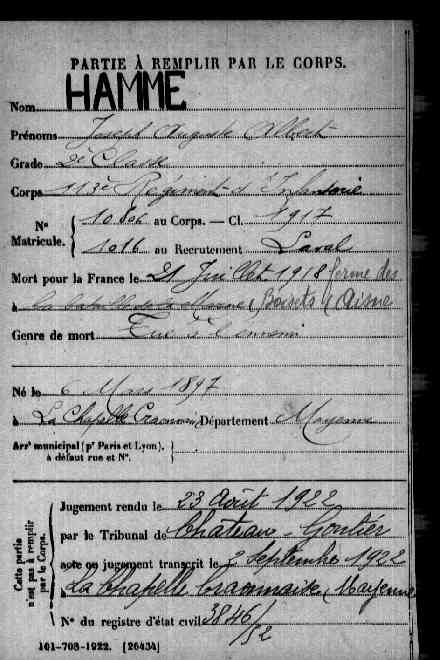 PARTIE À REMPLIR PAR LE CORPS.
Nom HAMME
Prénoms Joseph Auguste Albert
Grade 2e Classe
Corps 113e Régiment d'Infanterie
Nº Matricule. 10606 au Corps. — Cl. 1917
1016 au Recrutement Laval
Mort pour la France le 21 Juillet 1918 ferme des
à la bataille de la Marne, Boisets (Aisne
Genre de mort Tué à l'ennemi
Né le 6 Mars 1897
à La Chapelle Craonnaise Département Mayenne
Arrt municipal (pr Paris et Lyon), à défaut rue et Nº.
Cette partie n'est pas à remplir par le Corps.
Jugement rendu le 23 Août 1922
par le Tribunal de Château-Gontier
acte ou jugement transcrit le 2 Septembre 1922
à La Chapelle Craonnaise (Mayenne
Nº du registre d'état civil 3846/52
101-708-1922. [26434]